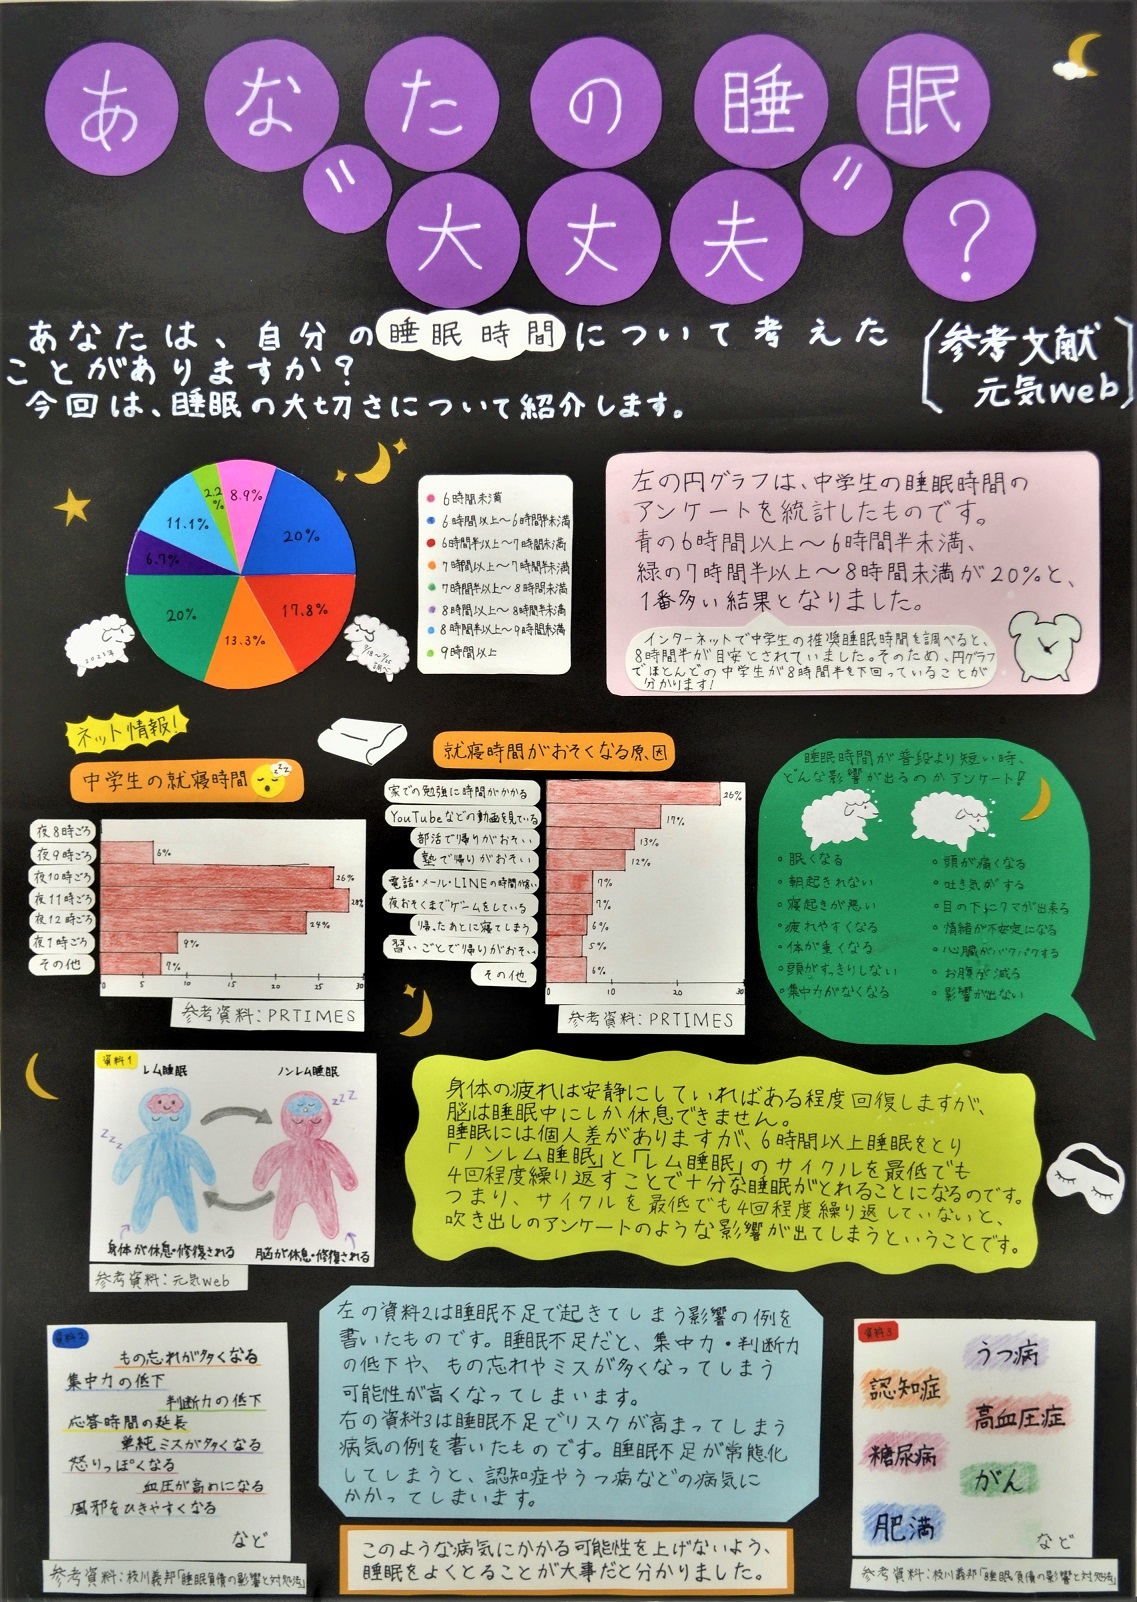 あなたの睡眠
〝大丈夫〟?
あなたは、自分の睡眠時間について考えた
ことがありますか?
今回は、睡眠の大切さについて紹介します。
参考文献
元気web
8.9%
20%
17.8%
13.3%
20%
6.7%
11.1%
2.2%
2023年
調べ
6時間未満
6時間以上〜6時間半未満
6時間半以上〜7時間未満
7時間以上〜7時間半未満
7時間半以上〜8時間未満
8時間以上〜8時間半未満
8時間半以上〜9時間未満
9時間以上
左の円グラフは、中学生の睡眠時間の
アンケートを統計したものです。
青の6時間以上〜6時間半未満、
緑の7時間半以上〜8時間未満が20%と、
1番多い結果となりました。
インターネットで中学生の推奨睡眠時間を調べると、
8時間半が目安とされていました。そのため、円グラフ
でほとんどの中学生が8時間半を下回っていることが
分かります!
ネット情報!
中学生の就寝時間
zzz
夜8時ごろ
夜9時ごろ 6%
夜10時ごろ 26%
夜11時ごろ 28%
夜12時ごろ 24%
夜1時ごろ 9%
その他 7%
0 5 10 15 20 25 30
参考資料:PRTIMES
就寝時間がおそくなる原因
家での勉強に時間がかかる 26%
YouTubeなどの動画を見ている 17%
部活で帰りがおそい 13%
塾で帰りがおそい 12%
電話・メール・LINEの時間が長い 7%
夜おそくまでゲームをしている 7%
帰ったあとに寝てしまう 6%
習いごとで帰りがおそい 5%
その他 6%
0 10 20 30
参考資料:PRTIMES
睡眠時間が普段より短い時、
どんな影響が出るのかアンケート!
・眠くなる
・朝起きれない
・寝起きが悪い
・疲れやすくなる
・体が重くなる
・頭がすっきりしない
・集中力がなくなる
・頭が痛くなる
・吐き気がする
・目の下にクマが出来る
・情緒が不安定になる
・心臓がバクバクする
・お腹が減る
・影響が出ない
資料1
レム睡眠 ノンレム睡眠
zzz
zzz
身体が休息・修復される 脳が休息・修復される
参考資料:元気web
身体の疲れは安静にしていればある程度回復しますが、
脳は睡眠中にしか休息できません。
睡眠には個人差がありますが、6時間以上睡眠をとり
「ノンレム睡眠」と「レム睡眠」のサイクルを最低でも
4回程度繰り返すことで十分な睡眠がとれることになるのです。
つまり、サイクルを最低でも4回程度繰り返していないと、
吹き出しのアンケートのような影響が出てしまうということです。
資料2
もの忘れが多くなる
集中力の低下
判断力の低下
応答時間の延長
単純ミスが多くなる
怒りっぽくなる
血圧が高めになる
風邪をひきやすくなる
など
参考資料:枝川義邦「睡眠負債の影響と対処法」
左の資料2は睡眠不足で起きてしまう影響の例を
書いたものです。睡眠不足だと、集中力・判断力
の低下や、もの忘れやミスが多くなってしまう
可能性が高くなってしまいます。
右の資料3は睡眠不足でリスクが高まってしまう
病気の例を書いたものです。睡眠不足が常態化
してしまうと、認知症やうつ病などの病気に
かかってしまいます。
このような病気にかかる可能性を上げないよう、
睡眠をよくとることが大事だと分かりました。
資料3
うつ病
認知症
高血圧症
糖尿病
がん
肥満
など
参考資料:枝川義邦「睡眠負債の影響と対処法」